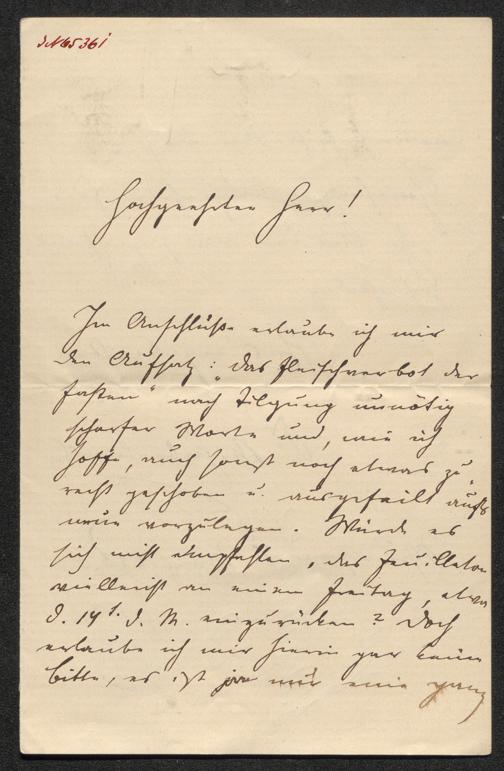 IN 65361
Hochgeehrter Herr!
Im Anschluße erlaube ich mir
den Aufsatz: „Das Fleischverbot der
Fasten" nach Tilgung unnötig
scharfer Worte und, wie ich
hoffe, auch sonst noch etwas zu-
recht geschoben u. ausgefeilt aufs
neue vorzulegen. Würde es
sich nicht empfehlen, das Feuilleton
vielleicht an einem Freitag, etwa
d. 14t. d. M. einzurücken? Doch
erlaube ich mir hierin gar keine
Bitte, es ist ja nur eine ganz